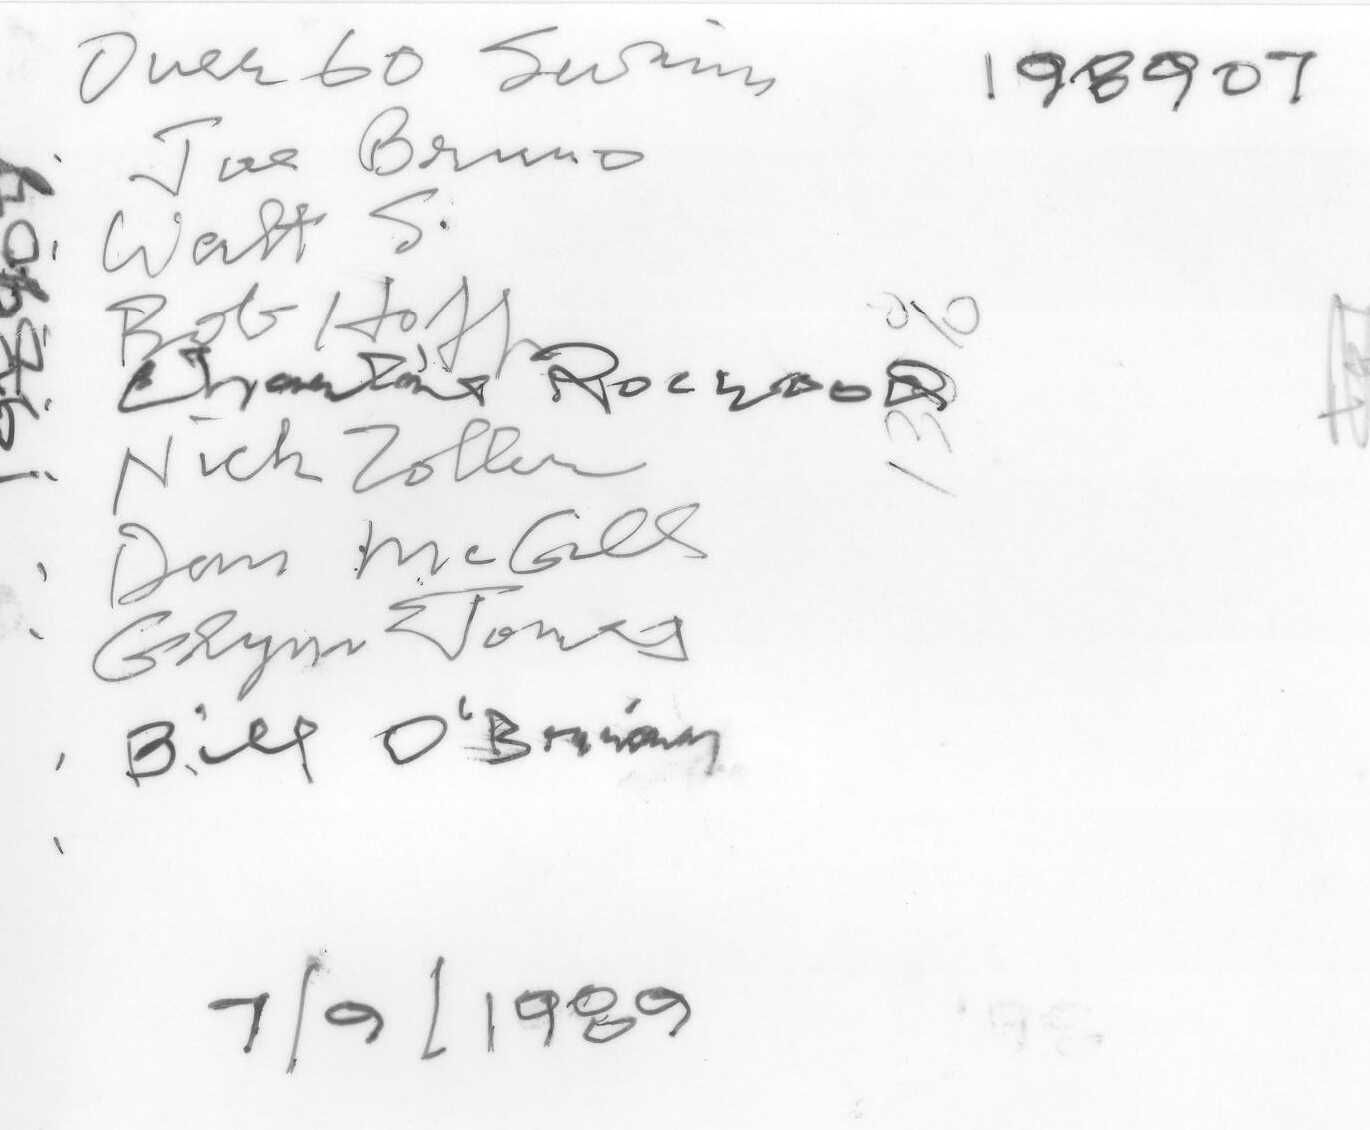 Over 60 Swim 198907
Joe Bruno
Walt S.
Bob Hoff
Rockwood
Nick Zoller
Dan McGill
Glynn Jones
Bill O'Brien
7/9/1989
198907
13%